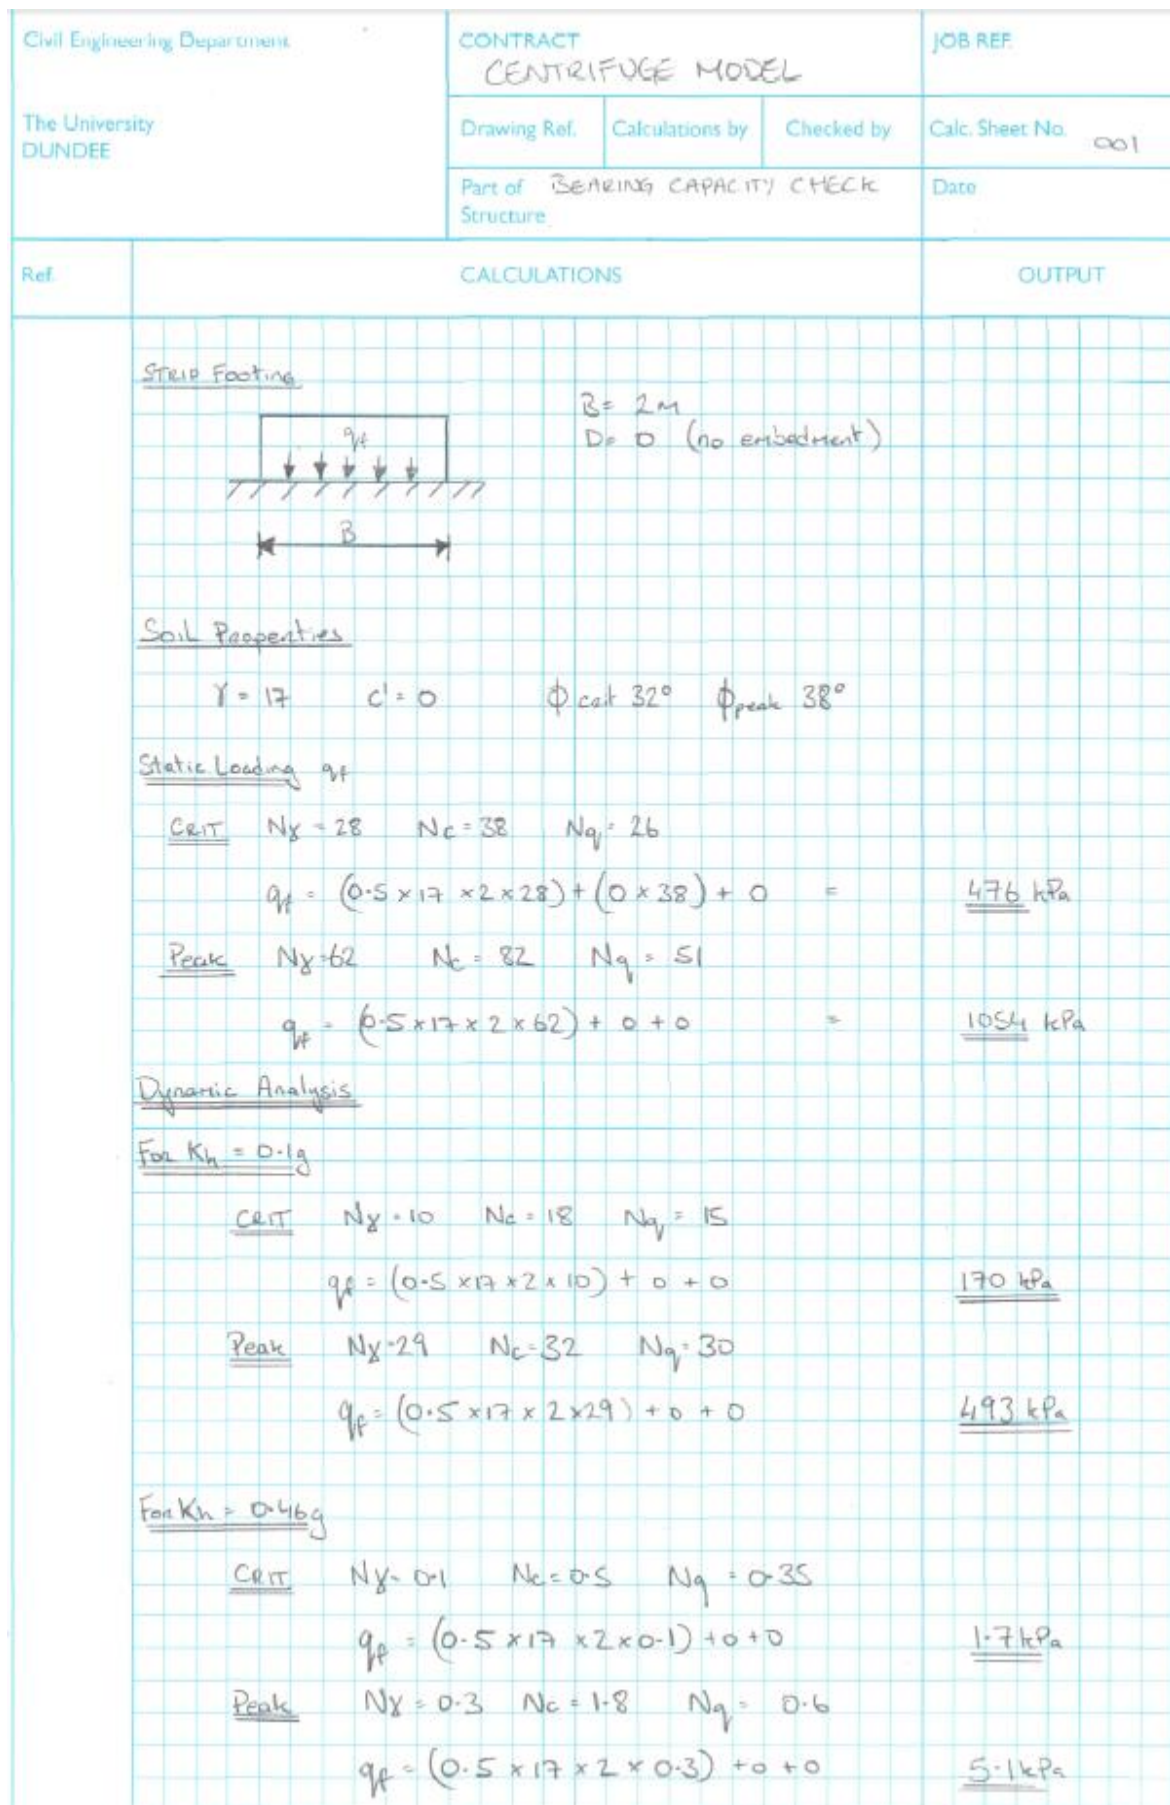 Civil Engineering Department
CONTRACT
CENTRIFUGE MODEL
JOB REF.
The University
DUNDEE
Drawing Ref.
Calculations by
Checked by
Calc. Sheet No. 001
Part of BEARING CAPACITY CHECK
Structure
Date
Ref.
CALCULATIONS
OUTPUT
STRIP Footing
B = 2m
D = 0 (no embedment)
qf
B
Soil Properties
γ = 17 c' = 0 ϕcrit 32° ϕpeak 38°
Static Loading qf
CRIT Nγ = 28 Nc = 38 Nq = 26
qf = (0.5 × 17 × 2 × 28) + (0 × 38) + 0 = 476 kPa
Peak Nγ = 62 Nc = 82 Nq = 51
qf = (0.5 × 17 × 2 × 62) + 0 + 0 = 1054 kPa
Dynamic Analysis
For Kh = 0.1g
CRIT Nγ = 10 Nc = 18 Nq = 15
qf = (0.5 × 17 × 2 × 10) + 0 + 0 170 kPa
Peak Nγ = 29 Nc = 32 Nq = 30
qf = (0.5 × 17 × 2 × 29) + 0 + 0 493 kPa
For Kh = 0.46g
CRIT Nγ = 0.1 Nc = 0.5 Nq = 0.35
qf = (0.5 × 17 × 2 × 0.1) + 0 + 0 1.7 kPa
Peak Nγ = 0.3 Nc = 1.8 Nq = 0.6
qf = (0.5 × 17 × 2 × 0.3) + 0 + 0 5.1 kPa